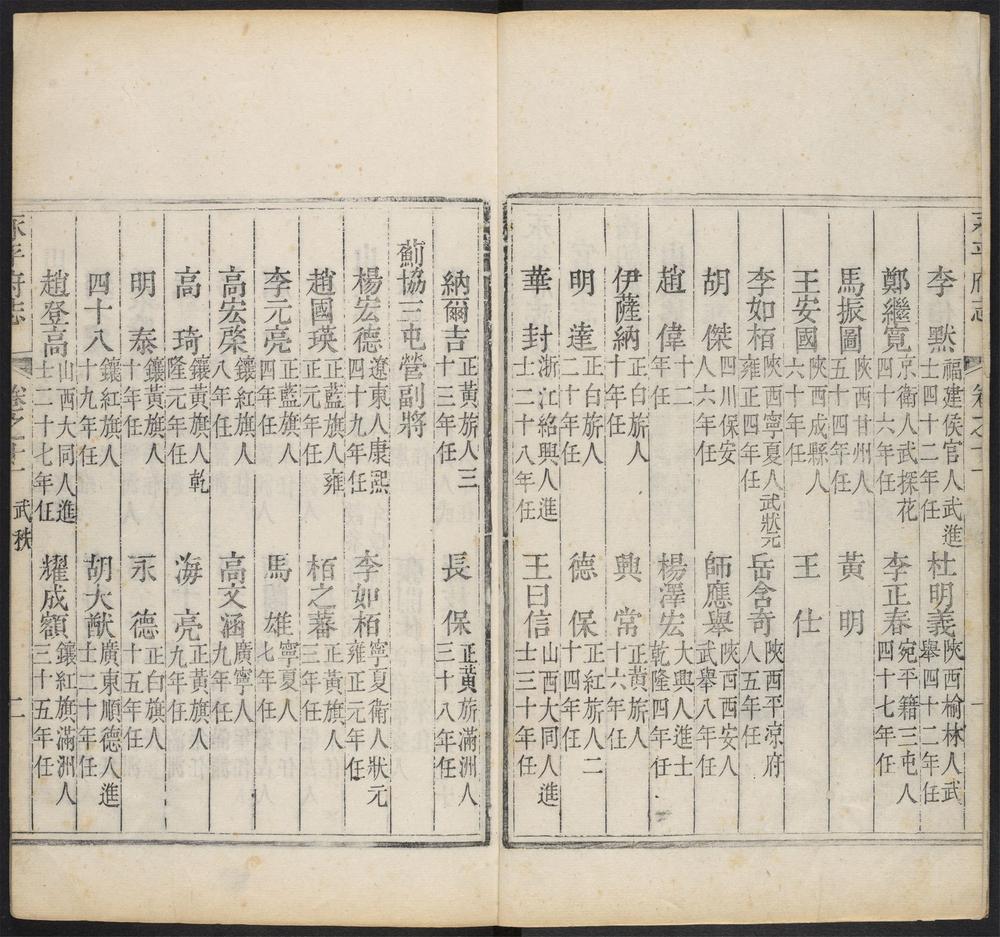 永平府志 卷之十一 一
李默 福建侯官人武進士四十二年任 杜明義 陝西榆林人武舉四十二年任
鄭繼寬 京衛人武探花四十六年任 李正春 宛平籍三屯人四十七年任
馬振圖 陝西甘州人五十四年任 黃明
王安國 陝西成縣人六十年任 王仕
李如栢 陝西寧夏人武狀元雍正四年任 岳含奇 陝西平涼府人五年任
胡傑 四川保安人六年任 師應舉 陝西西安人武舉八年任
趙偉 十二年任 楊澤宏 大興人進士乾隆四年任
伊薩納 正白旂人十年任 興常 正黃旂人十六年任
明達 正白旂人二十年任 德保 正紅旂人二十四年任
華封 浙江紹興人進士二十八年任 王曰信 山西大同人進士三十年任
納爾吉 正黃旂人三十三年任 長保 正黃旂滿洲人三十八年任
薊協三屯營副將
楊宏德 遼東人康熙四十九年任 李如栢 寧夏衛人狀元雍正元年任
趙國瑛 正藍旗人雍正元年任 栢之蕃 正黃旗人三年任
李元亮 正藍旗人四年任 馬雄 寧夏人七年任
高宏棨 鑲紅旗人八年任 高文涵 廣寧人任
高琦 鑲黃旗人乾隆元年任 海亮 正黃旗人九年任
明泰 鑲黃旗人十年任 永德 正白旗人十五年任
四十八 鑲紅旗人十九年任 胡大猷 廣東順德人進士二十年任
趙登高 山西大同人進士二十七年任 耀成額 鑲紅旗滿洲人三十五年任
永平府志 卷之十一 武秩 二